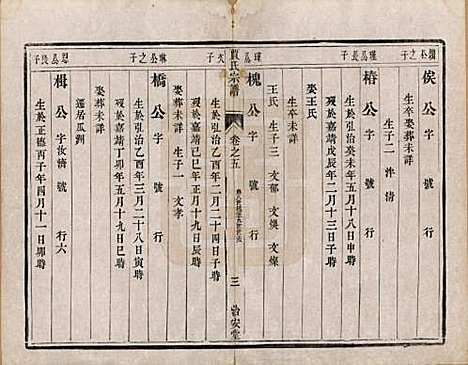 公之子
俟公字 號 行
生卒娶葬未詳
生子二 泮 清
公長子
椿公字 號 行
生於弘治癸未年五月十九日申時
歿於嘉靖戊辰年二月十三日子時
娶王氏
公次子
槐公字 號 行
生卒未詳
王氏 生子三 文郁 文煥 文燦
氏宗譜
卷之五
三
治安堂
生於弘治乙酉年二月二十四日子時
歿於嘉靖己巳年五月十九日辰時
娶葬未詳 生子一 文孝
公之子
橋公字 號 行
生於弘治乙酉年三月二十八日寅時
歿於嘉靖丁卯年五月十七日時
娶葬未詳
公長子
楫公字汝濟 號 行六
遷居瓜州
生於正德丙子年四月十一日卯時